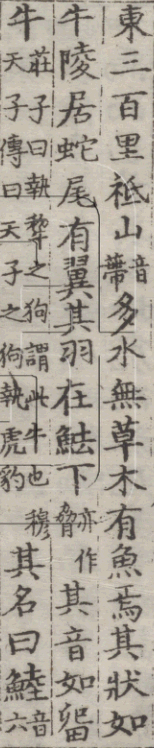 東三百里祗山音蔕多水無草木有魚焉其狀如
牛陵居蛇尾有翼其羽在魼下亦作脅其音如留
牛莊子曰執犂之狗謂此牛也穆天子傳曰天子之狗執虎豹其名曰鯥音六